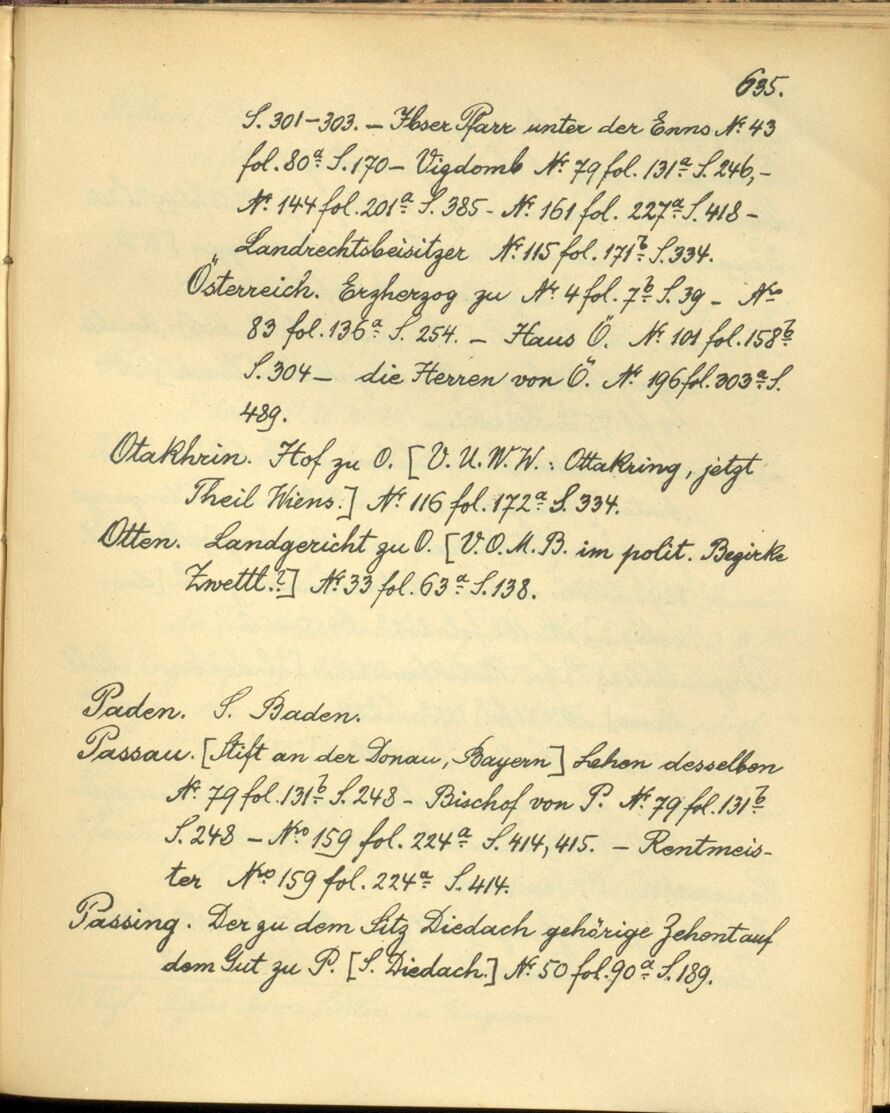 635.
S. 301–303. – Ibser Pfarr unter der Enns Nr. 43
fol. 80a S. 170 – Vizdomb Nr. 79 fol. 131a S. 246, –
Nr. 144 fol. 201a S. 385 – Nr. 161 fol. 227a S. 418 –
Landrechtsbeisitzer Nr. 115 fol. 171b S. 334.
Österreich. Erzherzog zu Nr. 4 fol. 7b S. 39 – Nro
83 fol. 136a S. 254. – Haus Ö. Nr. 101 fol. 158b
S. 304 – die Herren von Ö. Nr. 196 fol. 303a S.
489.
Otakhrin. Hof zu O. [V. U. W. W. : Ottakring, jetzt
Theil Wiens.] Nr. 116 fol. 172a S. 334.
Otten. Landgericht zu O. [V. O. M. B. im polit. Bezirke
Zwettl.?] Nr. 33 fol. 63a S. 138.
Paden. S. Baden.
Passau. [Stift an der Donau, Bayern] Lehen desselben
Nr. 79 fol. 131b S. 248 – Bischof von P. Nr. 79 fol. 131b
S. 248 – Nro 159 fol. 224a S. 414, 415. – Rentmeis-
ter Nro 159 fol. 224a S. 414.
Passing. Der zu dem Sitz Diedach gehörige Zehent auf
dem Gut zu P. [S. Diedach.] Nr. 50 fol. 90a S. 189.